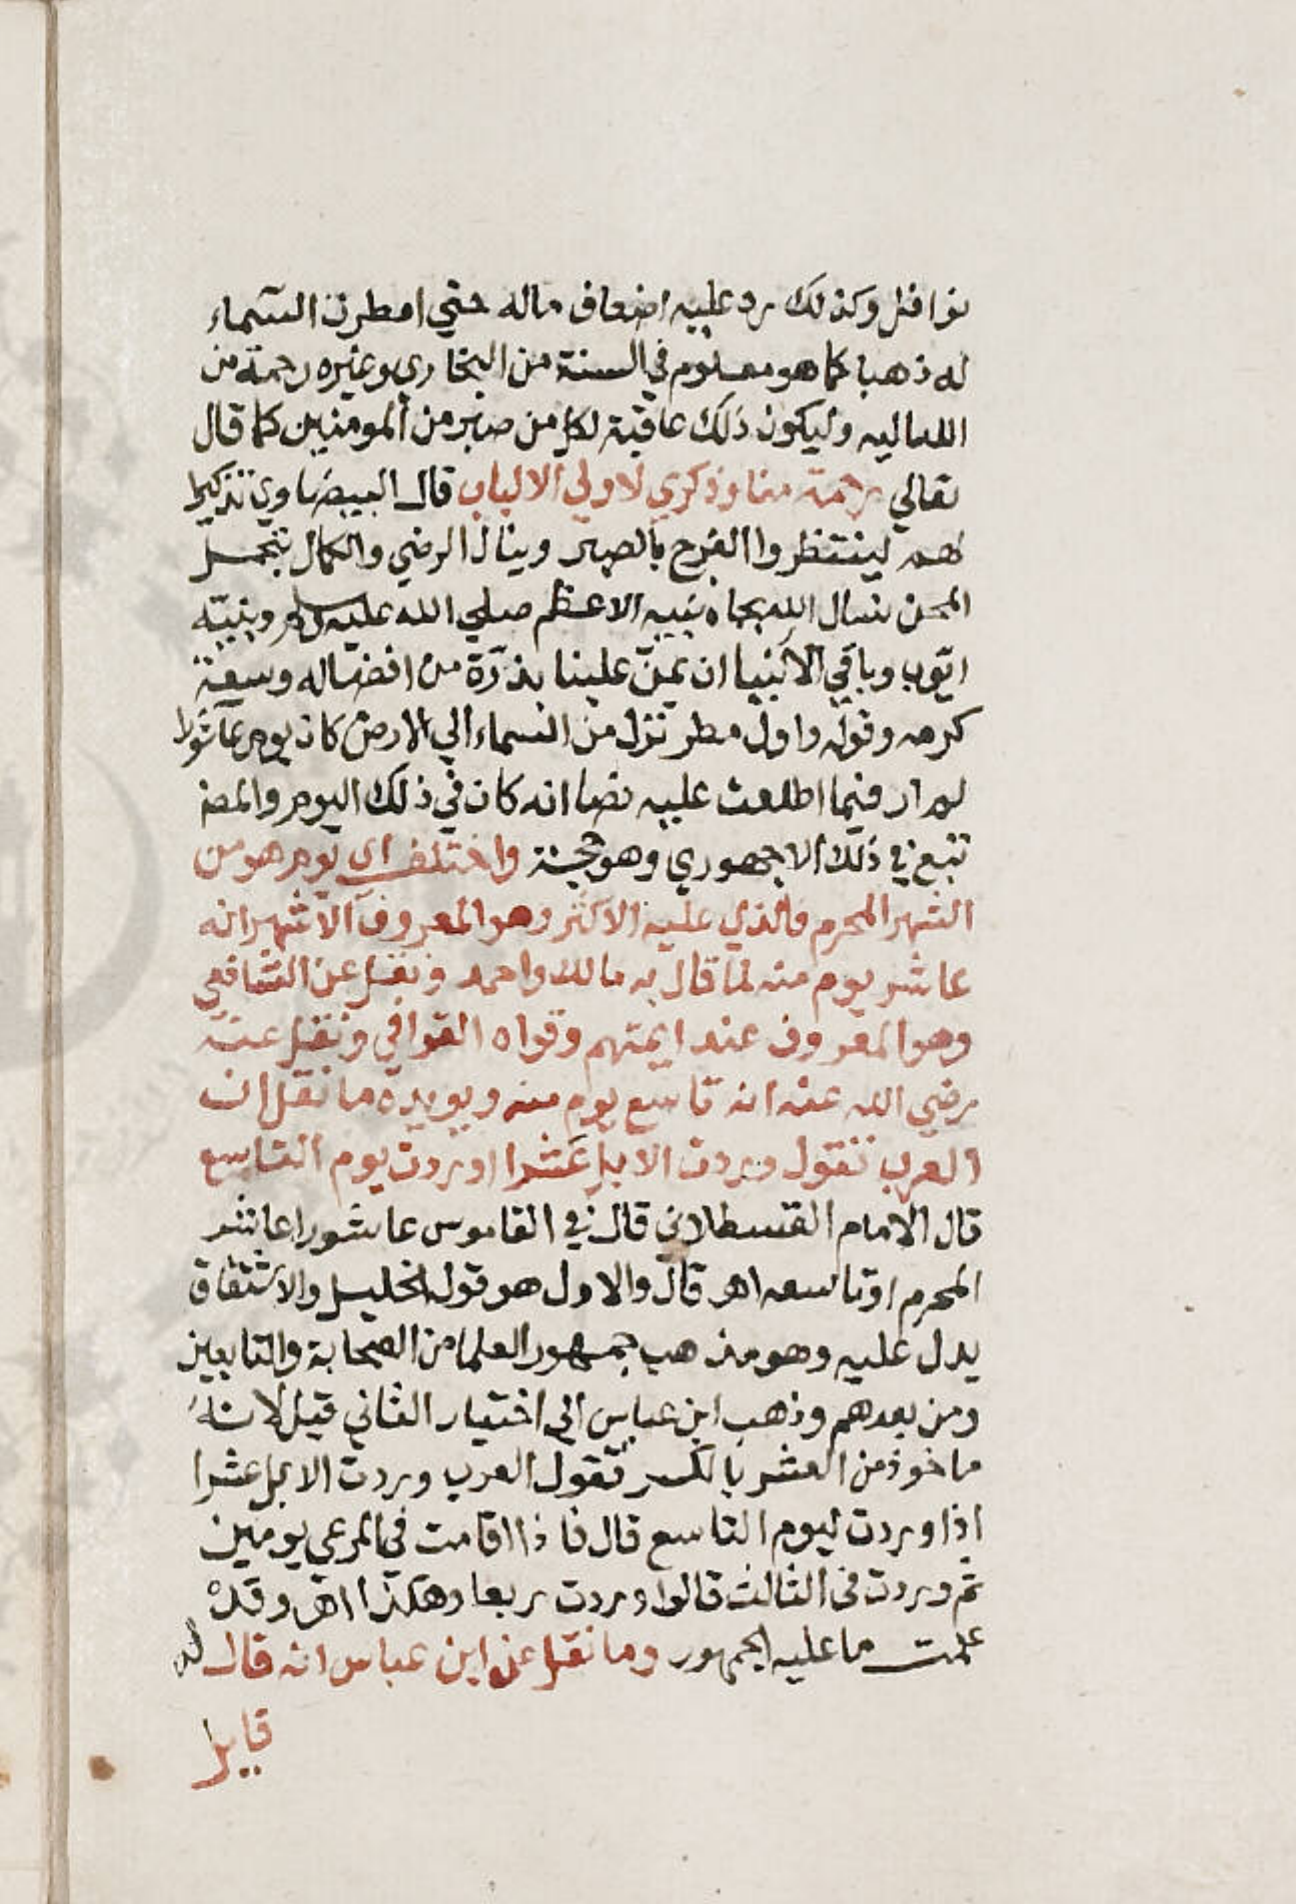 نوافل وكذلك رد عليه اضعاف ماله حتي امطرت السماء
له ذهبا كما هو معلوم في السنة من البخاري وغيره رحمة من
الله اليه وليكون ذلك عاقبة لكل من صبر من المومنين كما قال
تعالي رحمة منا وذكري لاولي الالباب قال البيضاوي تذكيرا
لهم لينتظروا الفرج بالصبر وينال الرضي والكمال بتحمل
المحن نسال الله بجاه نبيه الاعظم صلي الله عليه وسلم وبنبيه
ايوب وباقي الانبيا ان يمن علينا بذرة من افضاله وسعة
كرمه وقوله واول مطر نزل من السماء الي الارض كان يوم عاشورا
لم ار فيما اطلعت عليه نصا انه كان في ذلك اليوم والمصنف
تبع في ذلك الاجهوري وهو حجة واختلف اي يوم هو من
الشهر المحرم فالذي عليه الاكثر وهو المعروف الاشهر انه
عاشر يوم منه لما قال به مالك واحمد ونقل عن الشافعي
وهو المعروف عند ايمتهم وقواه القرافي ونقل عنه
رضي الله عنه انه تاسع يوم منه ويويده ما نقل ان
العرب تقول وردت الابل عشرا اوردت يوم التاسع
قال الامام القسطلاني قال في القاموس عاشورا عاشر
المحرم اوتاسعه اهر قال والاول هو قول الخليل والاشتقاق
يدل عليه وهو مذهب جمهور العلما من الصحابة والتابعين
ومن بعدهم وذهب ابن عباس الي اختيار الثاني قيل لانه
ماخوذ من العشر بالكسر تقول العرب وردت الابل عشرا
اذا وردت ليوم التاسع قال فاذا اقامت في المرعي يومين
ثم وردت في الثالث قالوا وردت ربعا وهكذا اهر وقد
علمت ما عليه الجمهور وما نقل عن ابن عباس انه قال له
قايل